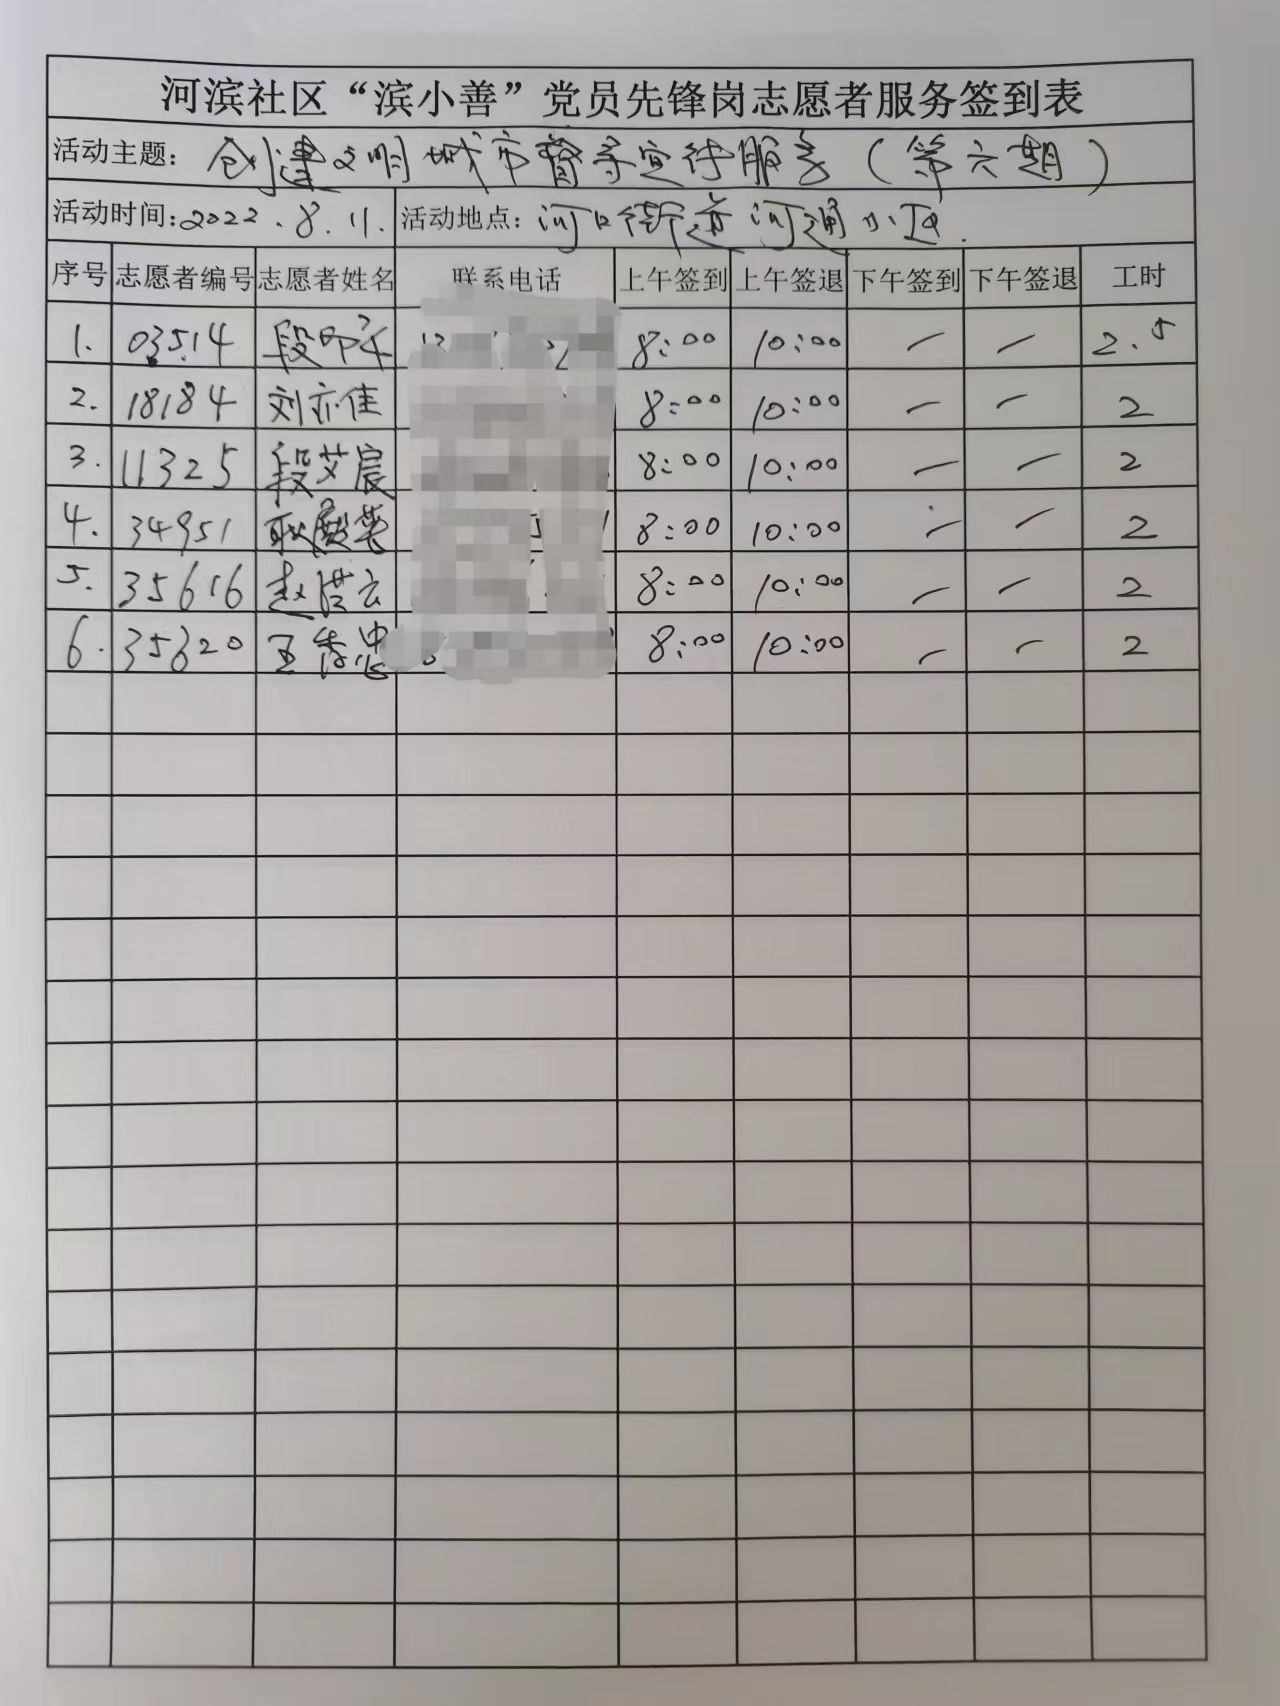 河滨社区“滨小善”党员先锋岗志愿者服务签到表
活动主题：创建文明城市督导宣传服务（第六期）
活动时间：2022.8.11. 活动地点：河口街道河通小区.
序号 志愿者编号 志愿者姓名 联系电话 上午签到 上午签退 下午签到 下午签退 工时
1. 03514 段 8:00 10:00 — — 2.5
2. 18184 刘亦佳 8:00 10:00 — — 2
3. 11325 段艾宸 8:00 10:00 — — 2
4. 34951 耿 8:00 10:00 — — 2
5. 35616 赵洪云 8:00 10:00 — — 2
6. 35620 王秀忠 8:00 10:00 — — 2